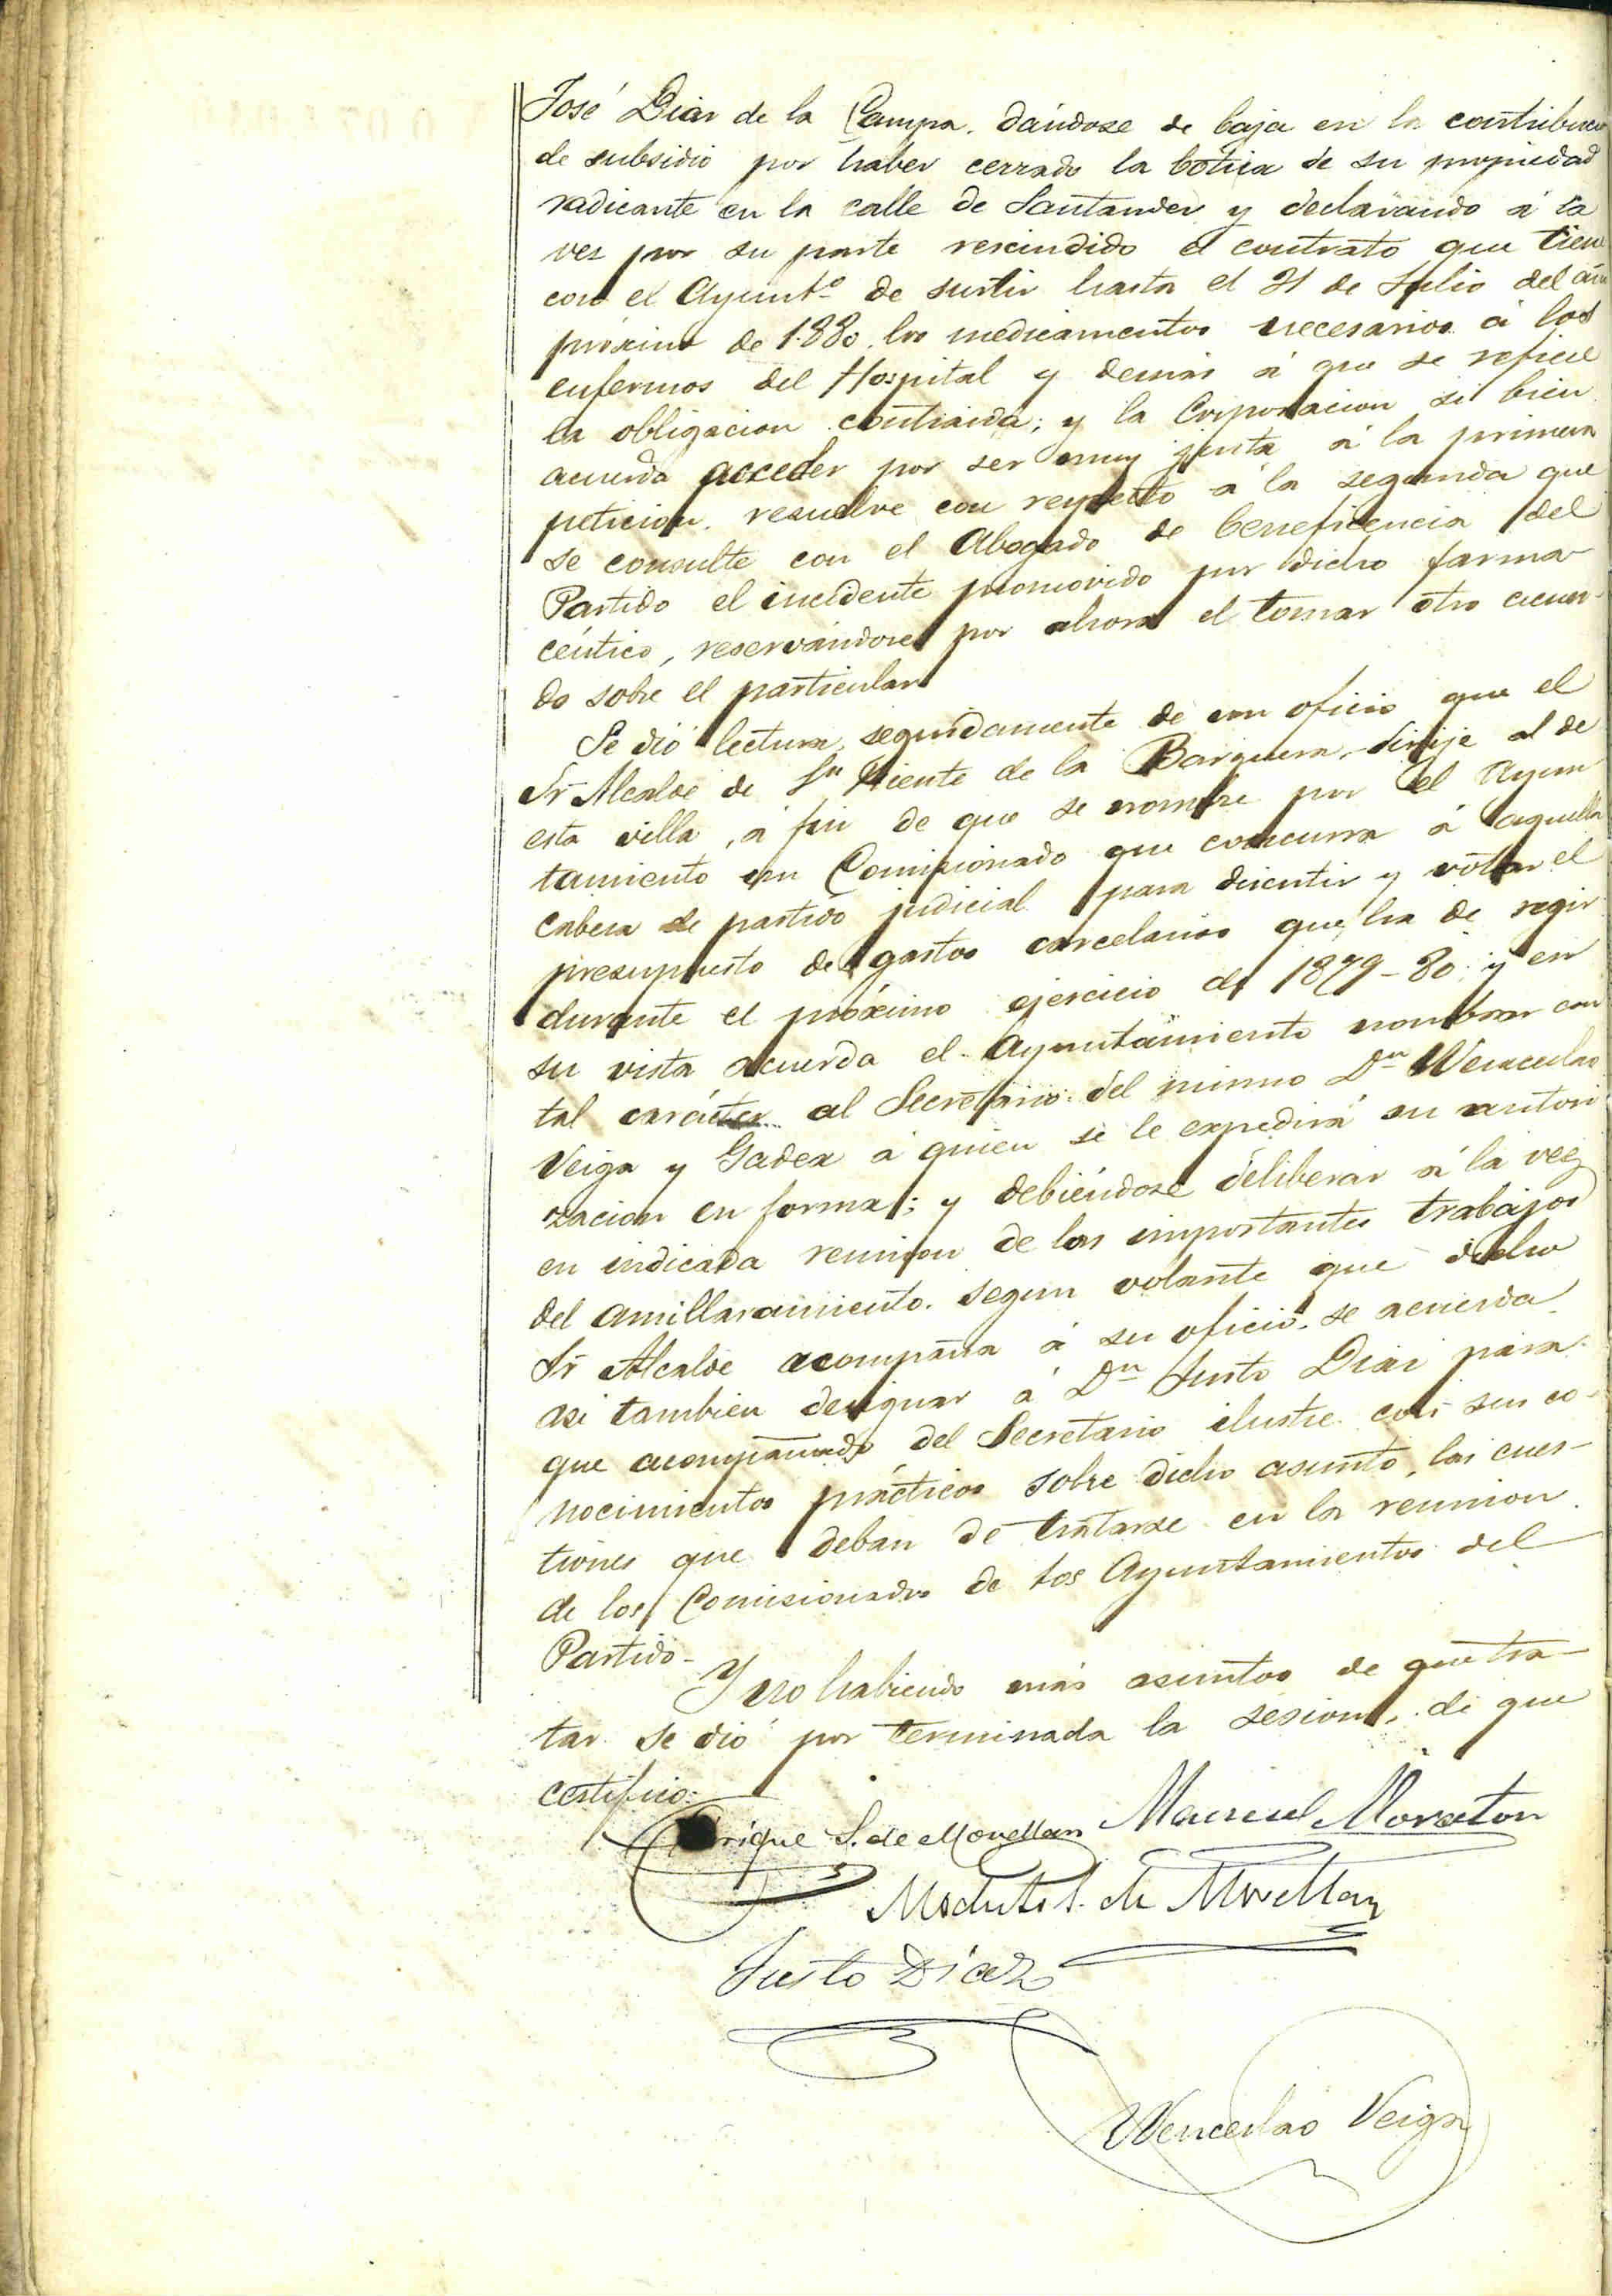 José Diaz de la Campa, dándose de baja en la contribucion
de subsidio por haber cerrado la botica de su propiedad
radicante en la calle de Santander y declarando á la
vez por su parte rescindido el contrato que tiene
con el Ayuntº de surtir hasta el 31 de Julio del año
próximo de 1.880, los medicamentos necesarios á los
enfermos del Hospital y demás á que se refiere
la obligacion contraida; y la Corporacion si bien
acuerda acceder por ser muy justa á la primera
peticion, resuelve con respecto á la segunda que
se consulte con el Abogado de beneficencia del
Partido el incidente promovido por dicho farma-
céutico, reservándose por ahora el tomar otro acuer-
do sobre el particular
Se dió lectura seguidamente de un oficio que el
Sr Alcalde de Sn Vicente de la Barquera, dirije al de
esta villa, á fin de que se nombre por el Ayun
tamiento un Comisionado que concurra á aquella
cabeza de partido judicial para discutir y votar el
presupuesto de gastos carcelarios que ha de regir
durante el próximo ejercicio de 1879-80; y en
su vista acuerda el Ayuntamiento nombrar con
tal carácter al Secretario del mismo Dn Wenceslao
Veiga y Gadea á quien se le expedirá su autori
zacion en forma; y debiéndose deliberar á la vez
en indicada reunion de los importantes trabajos
del amillaramiento, segun volante que dicho
Sr Alcalde acompaña á su oficio, se acuerda
asi tambien designar á Dn Justo Diaz para
que acompañado del Secretario ilustre con sus co-
nocimientos prácticos sobre dicho asunto, las cues-
tiones que deban de tratarse en la reunion
de los Comisionados de los Ayuntamientos del
Partido-
Y no habiendo más asuntos de que tra-
tar se dió por terminada la sesion, de que
certifico:
Enrique S. de Movellan Manuel Moraton
Modesto S. de Movellan
Justo Díaz
Wenceslao Veiga